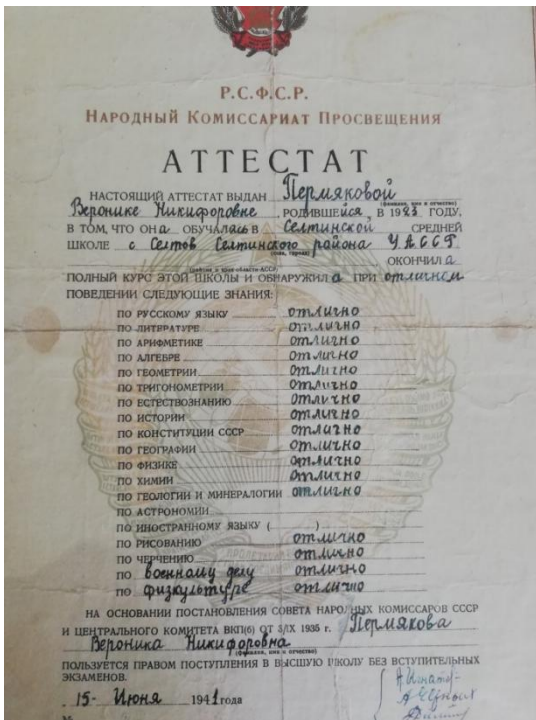 Р.С.Ф.С.Р.
НАРОДНЫЙ КОМИССАРИАТ ПРОСВЕЩЕНИЯ
АТТЕСТАТ
НАСТОЯЩИЙ АТТЕСТАТ ВЫДАН Пермяковой
(фамилия, имя и отчество)
Веронике Никифоровне, РОДИВШЕЙСЯ В 1923 ГОДУ,
В ТОМ, ЧТО ОНА ОБУЧАЛАСЬ В Селтинской СРЕДНЕЙ
ШКОЛЕ с Селтов Селтинского района УАССР
ОКОНЧИЛА
ПОЛНЫЙ КУРС ЭТОЙ ШКОЛЫ И ОБНАРУЖИЛА ПРИ отличном
ПОВЕДЕНИИ СЛЕДУЮЩИЕ ЗНАНИЯ:
ПО РУССКОМУ ЯЗЫКУ отлично
ПО ЛИТЕРАТУРЕ отлично
ПО АРИФМЕТИКЕ отлично
ПО АЛГЕБРЕ отлично
ПО ГЕОМЕТРИИ отлично
ПО ТРИГОНОМЕТРИИ отлично
ПО ЕСТЕСТВОЗНАНИЮ отлично
ПО ИСТОРИИ отлично
ПО КОНСТИТУЦИИ СССР отлично
ПО ГЕОГРАФИИ отлично
ПО ФИЗИКЕ отлично
ПО ХИМИИ отлично
ПО ГЕОЛОГИИ И МИНЕРАЛОГИИ отлично
ПО АСТРОНОМИИ
ПО ИНОСТРАННОМУ ЯЗЫКУ ( )
ПО РИСОВАНИЮ отлично
ПО ЧЕРЧЕНИЮ отлично
ПО военному делу отлично
ПО физкультуре отлично
НА ОСНОВАНИИ ПОСТАНОВЛЕНИЯ СОВЕТА НАРОДНЫХ КОМИССАРОВ СССР
И ЦЕНТРАЛЬНОГО КОМИТЕТА ВКП(б) ОТ 3/IX 1935 г. Пермякова
Вероника Никифоровна
(фамилия, имя и отчество)
ПОЛЬЗУЕТСЯ ПРАВОМ ПОСТУПЛЕНИЯ В ВЫСШУЮ ШКОЛУ БЕЗ ВСТУПИТЕЛЬНЫХ
ЭКЗАМЕНОВ.
15- Июня 1941 года